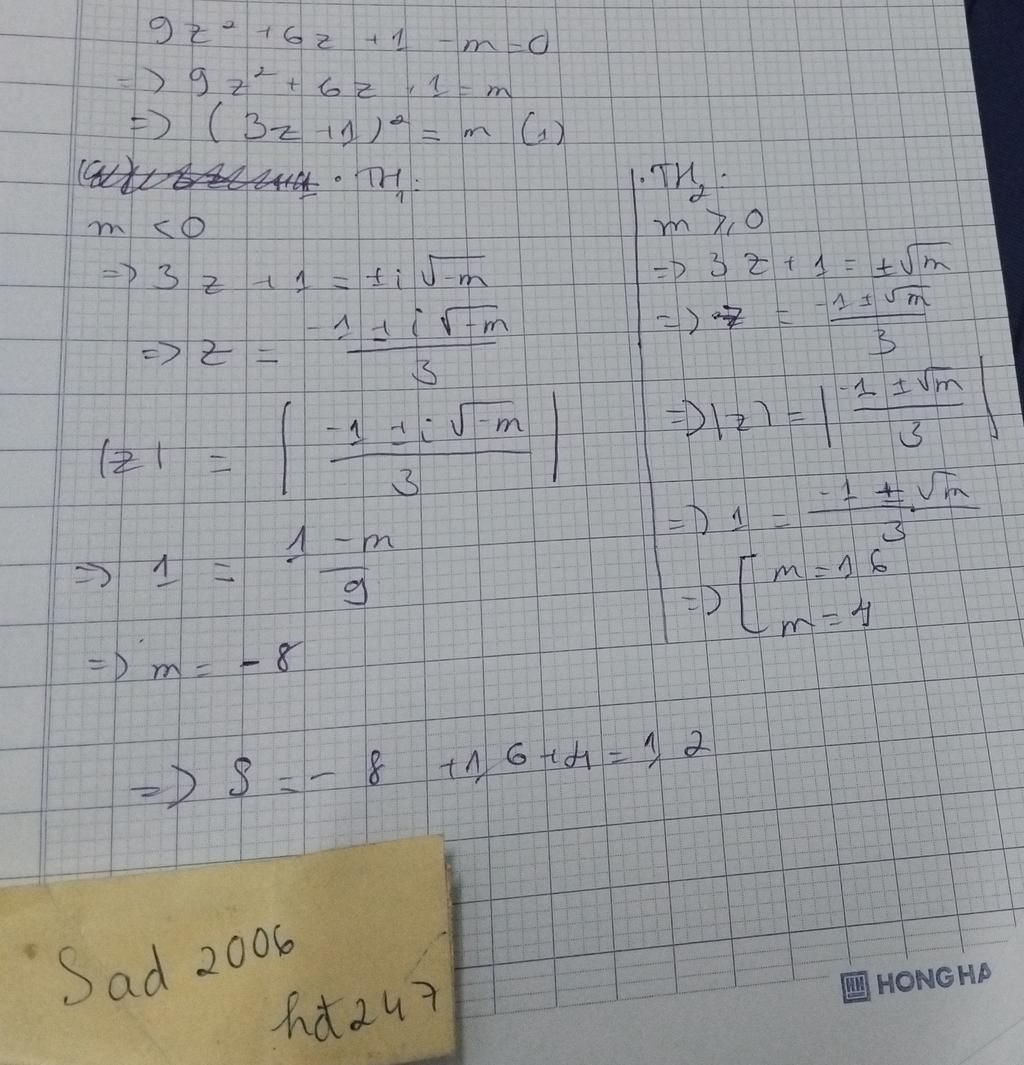 9z² + 6z + 1 - m = 0
=> 9z² + 6z + 1 = m
=> (3z + 1)² = m (1)
· TH₁:
m < 0
=> 3z + 1 = ±i√-m
=> z = (-1 ± i√-m)/3
|z| = |(-1 ± i√-m)/3|
=> 1 = (1 - m)/9
=> m = -8
· TH₂:
m ≥ 0
=> 3z + 1 = ±√m
=> z = (-1 ± √m)/3
=> |z| = |(-1 ± √m)/3|
=> 1 = (-1 ± √m)/3
=> [ m = 16
m = 4
=> S = -8 + 16 + 4 = 12
Sad 2006
hdt247
HONG HA